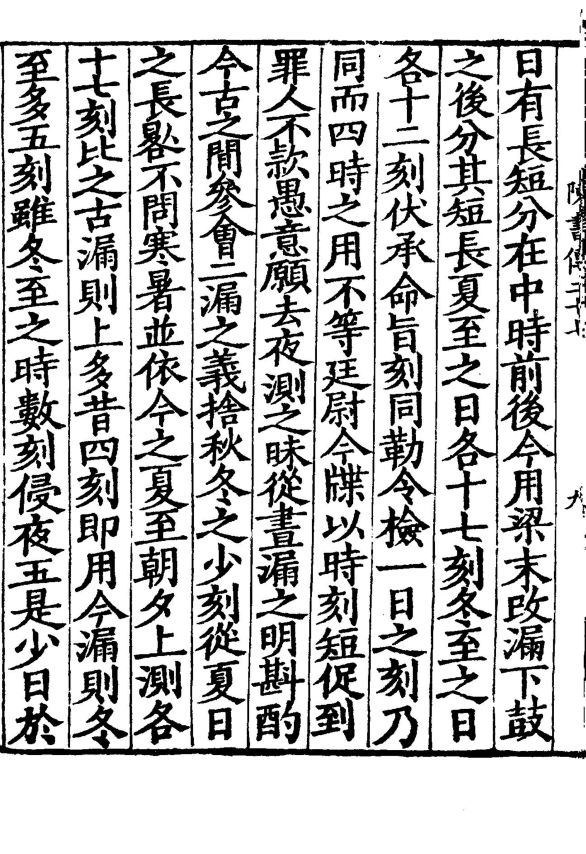 陳書傳二十七
九
日有長短分在中時前後今用梁末改漏下鼓
之後分其短長夏至之日各十七刻冬至之日
各十二刻伏承命旨刻同勒令檢一日之刻乃
同而四時之用不等廷尉今牒以時刻短促到
罪人不款愚意願去夜測之昧從晝漏之明斟酌
今古之間參會二漏之義捨秋冬之少刻從夏日
之長晷不問寒暑並依今之夏至朝夕上測各
十七刻比之古漏則上多昔四刻即用今漏則冬
至多五刻雖冬至之時數刻侵夜五是少日於